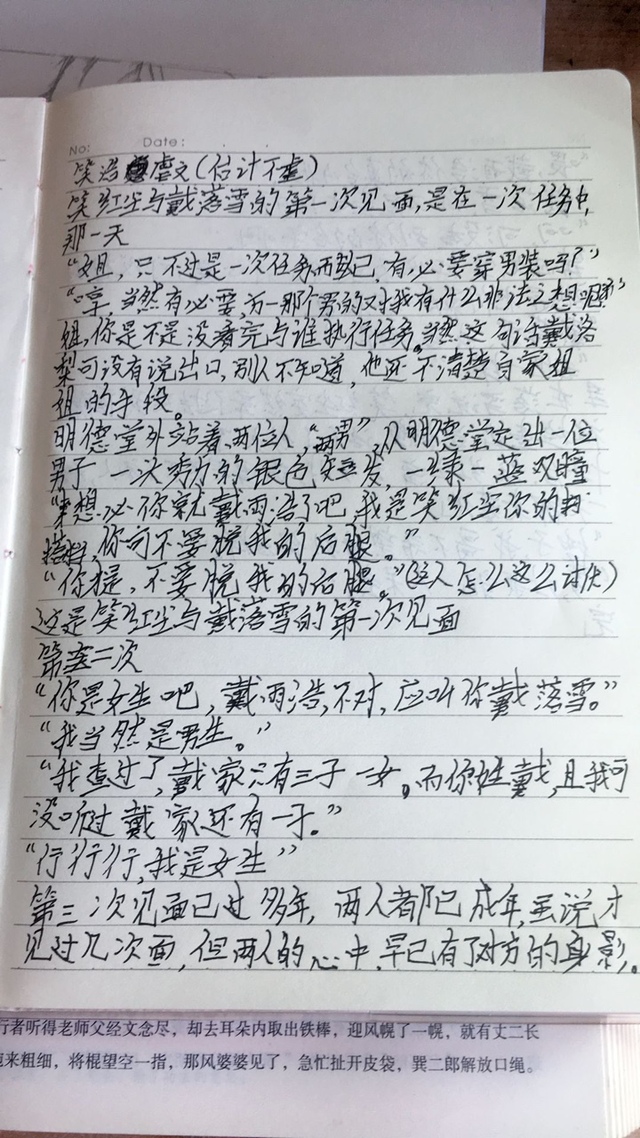 No:   Date: . .
笑浩虐文(估计不虐)
笑红尘与戴落雪的第一次见面,是在一次任务中,
那一天
“姐,只不过是一次任务而已,有必要穿男装吗?”
“哼,当然有必要,万一那个男的对我有什么非法之想呢”
姐,你是不是没看完与谁执行任务。当然这句话戴洛
梨可没有说出口,别人不知道,他还不清楚自家姐
姐的手段。
明德堂外站着两位人,“两男”,从明德堂走出一位
男子一头秀力的银色短发,一柔一蓝双瞳
“想必你就戴雨浩了吧,我是笑红尘你的
搭档,你可不要脱我的后腿。”
“你才是,不要脱我的后腿。”(这人怎么这么讨厌)
这是笑红尘与戴落雪的第一次见面
第二次
“你是女生吧,戴雨浩,不对,应叫你戴落雪。”
“我当然是男生。”
“我查过了,戴家只有三子一女。而你姓戴,且我可
没听过戴家还有一子。”
“行行行,我是女生”
第三次见面已过多年,两人都已成年,虽说才
见过几次面,但两人的心中,早已有了对方的身影。
行者听得老师父经文念尽,却去耳朵内取出铁棒,迎风幌了一幌,就有丈二长
来粗细,将棍望空一指,那风婆婆见了,急忙扯开皮袋,巽二郎解放口绳。